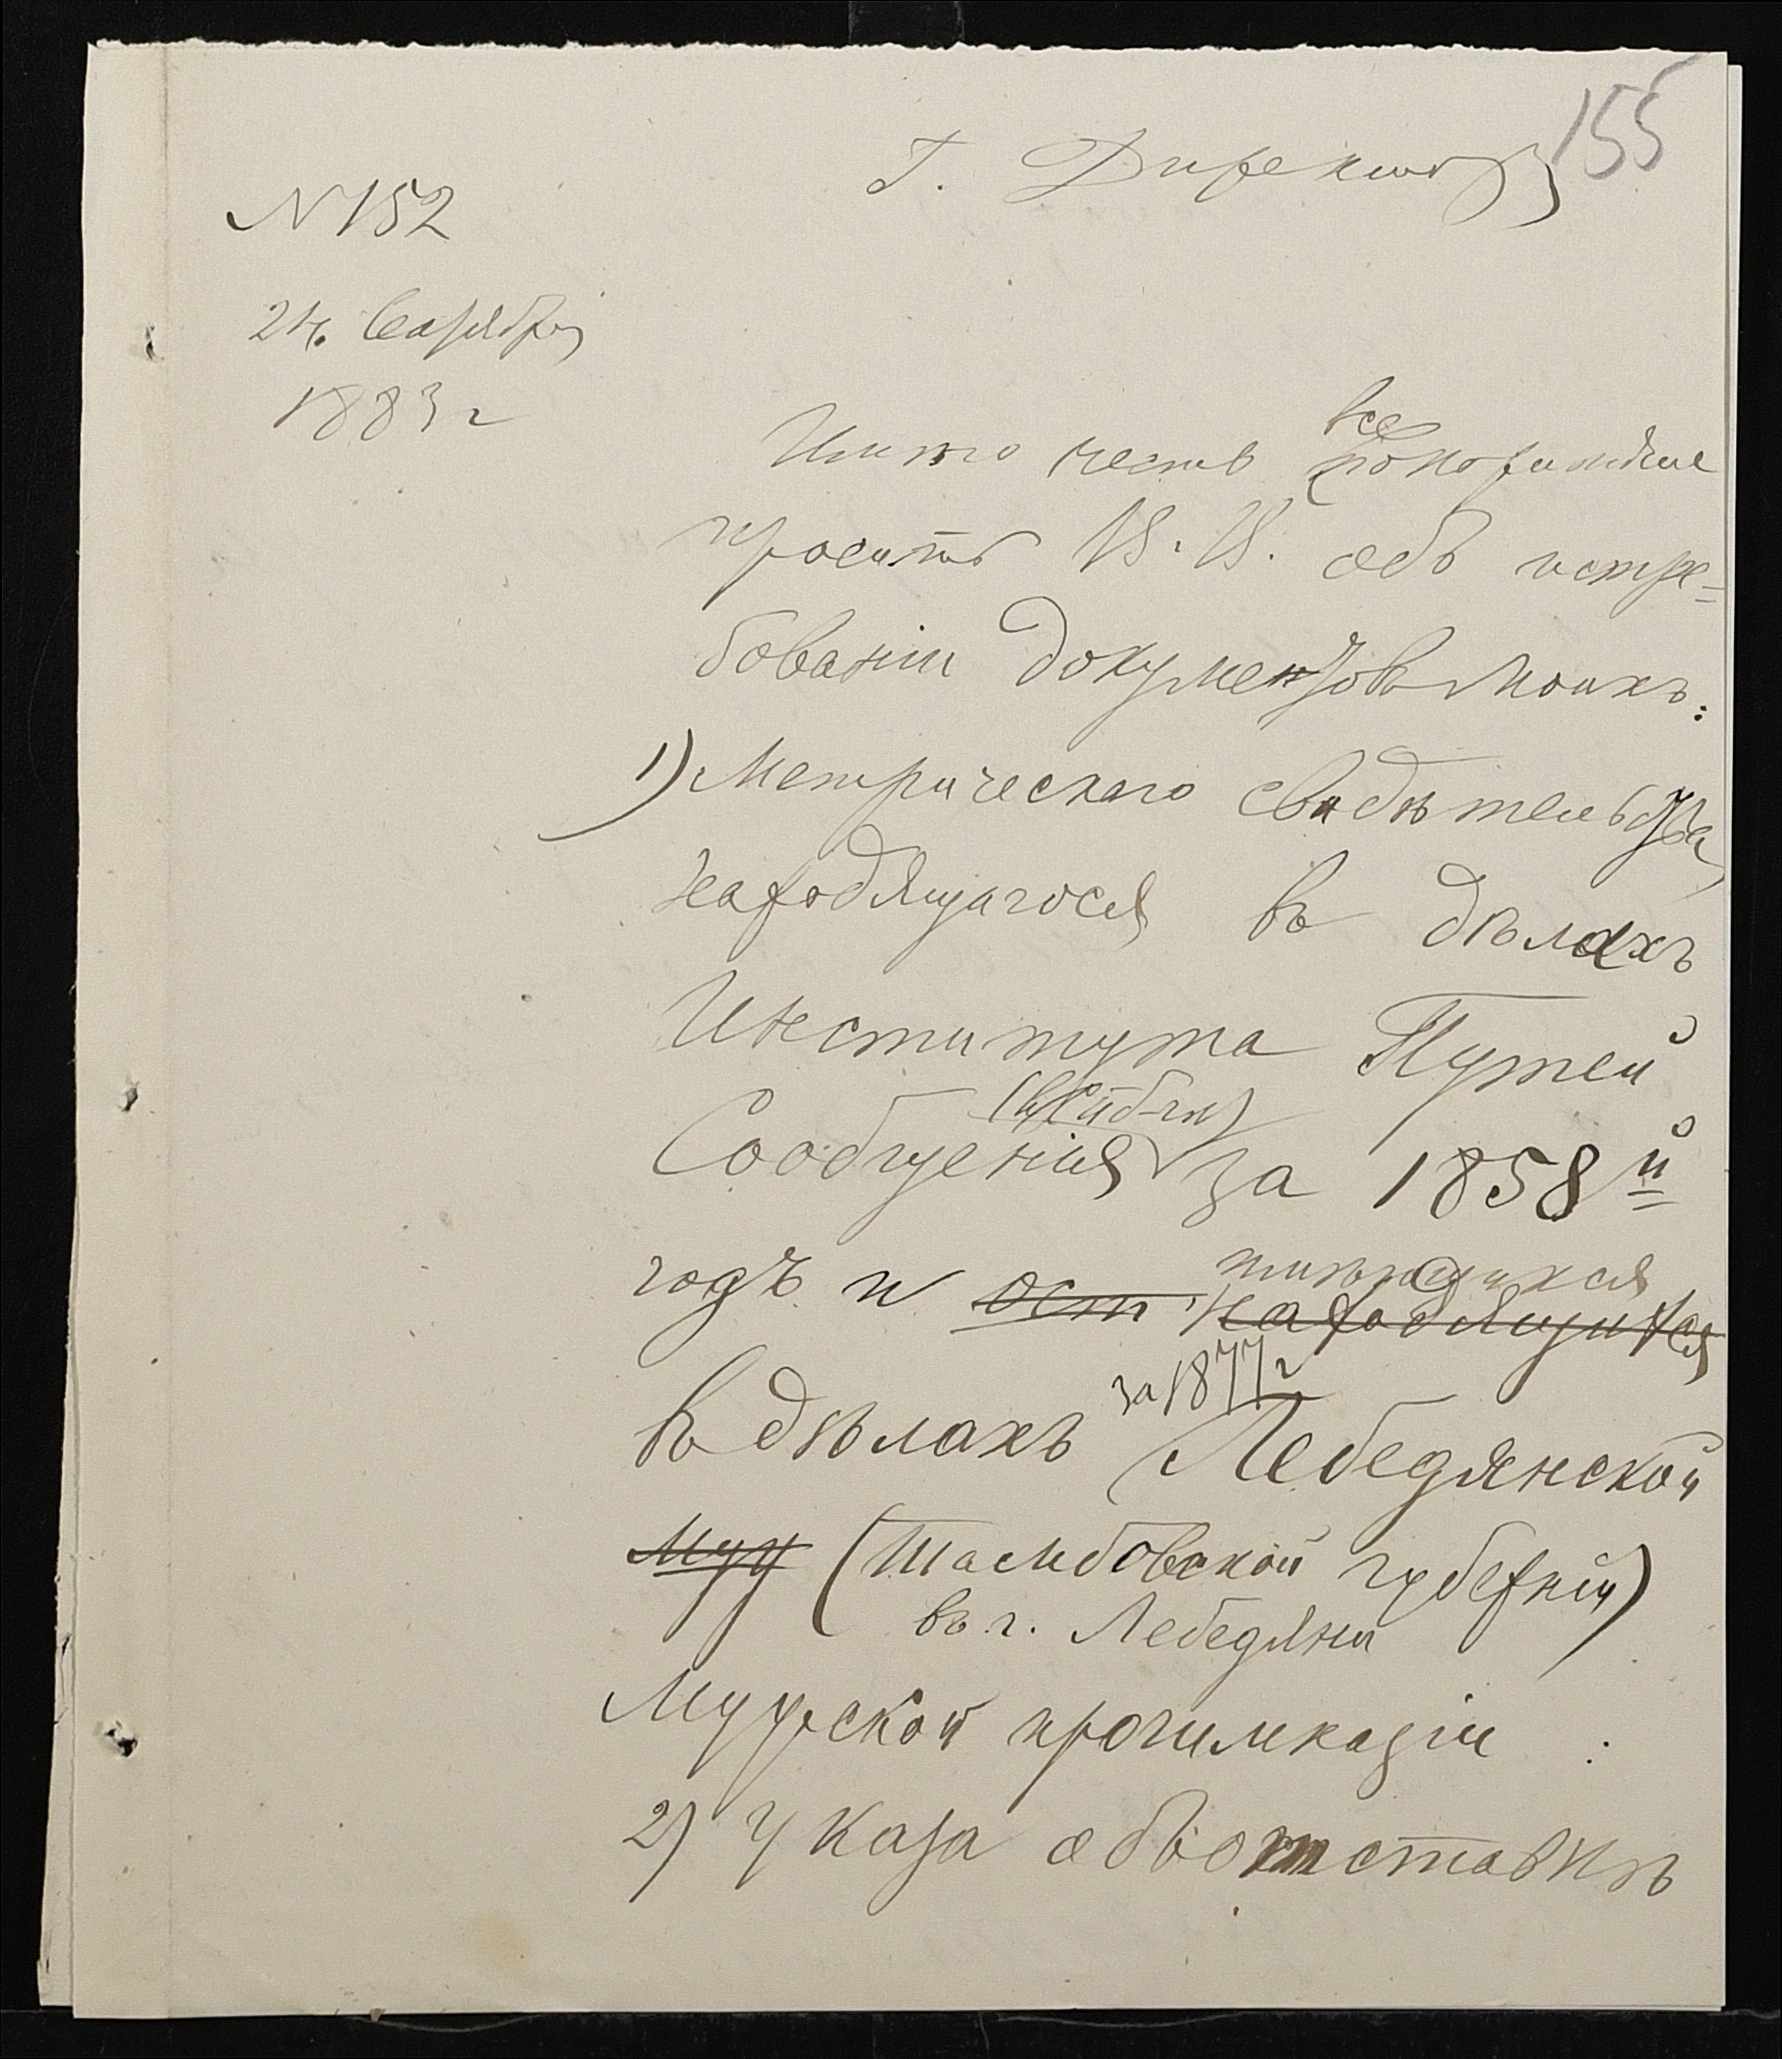 155
Г. Директору
N 152
24. Сентября
1883 г
все
Имѣю честь покорнѣйше
просить В. В. объ истре-
бованіи документовъ моихъ:
1) Метрическаго свидѣтельства
находящагося въ дѣлахъ
Института Путей
Сообщенія за 1858 й
годъ и ост находящихся
за 1877 г
въ дѣлахъ Лебедянской
Муж (Тамбовской губерніи)
въ г. Лебедяни
Мужской прогимназіи :
2) Указа объ отставкѣ